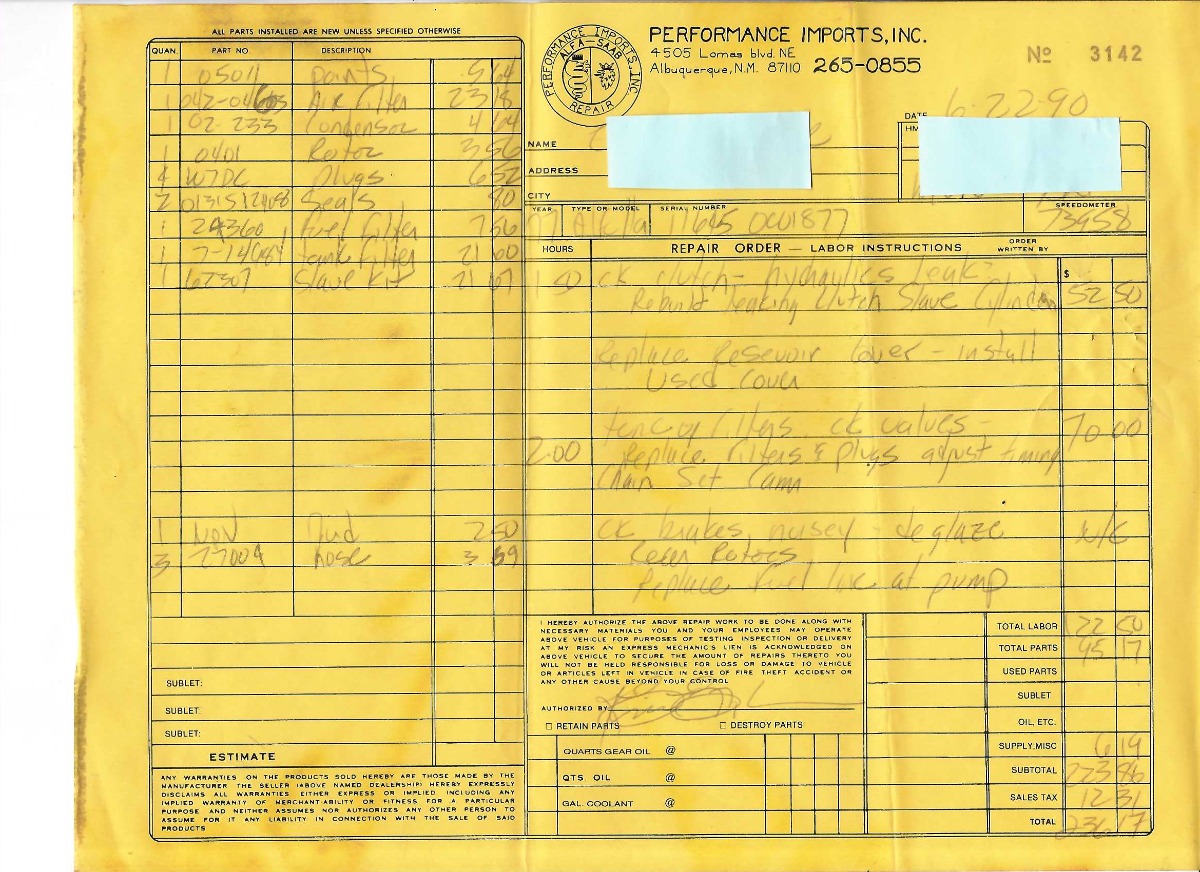 ALL PARTS INSTALLED ARE NEW UNLESS SPECIFIED OTHERWISE
QUAN. PART NO. DESCRIPTION
1 05011 points 5 64
1 042-04 Air Filter 23 18
1 02-233 Condensor 4 64
1 0401 Rotor 3 56
4 W7DC plugs 6 52
2 Seals 80
1 24360 Fuel Filter 7 56
1 tank Filter 21 60
1 62307 Slave Kit
1 NON 2 50
3 27004 hose 3 69
SUBLET:
SUBLET:
SUBLET:
ESTIMATE
ANY WARRANTIES ON THE PRODUCTS SOLD HEREBY ARE THOSE MADE BY THE
MANUFACTURER THE SELLER (ABOVE NAMED DEALERSHIP) HEREBY EXPRESSLY
DISCLAIMS ALL WARRANTIES EITHER EXPRESS OR IMPLIED INCLUDING ANY
IMPLIED WARRANTY OF MERCHANTABILITY OR FITNESS FOR A PARTICULAR
PURPOSE AND NEITHER ASSUMES NOR AUTHORIZES ANY OTHER PERSON TO
ASSUME FOR IT ANY LIABILITY IN CONNECTION WITH THE SALE OF SAID
PRODUCTS
PERFORMANCE IMPORTS, INC
ALFA-SAAB
REPAIR
PERFORMANCE IMPORTS, INC.
4505 Lomas blvd. NE
Albuquerque, N.M. 87110 265-0855
No 3142
DATE 6-22-90
NAME
HM
ADDRESS
CITY
YEAR TYPE OR MODEL SERIAL NUMBER SPEEDOMETER
77 Alfetta 11645 0001877 73958
HOURS REPAIR ORDER — LABOR INSTRUCTIONS ORDER WRITTEN BY
1 50 CK clutch - hydraulics leak - $
Rebuild leaking Clutch Slave Cylinder 52 50
Replace Resevoir Cover - install
Used Cover
tune up filters ck valves - 70 00
2.00 Replace filters & plugs adjust timing
Chain Set Cam
CK brakes noisey - deglaze N/C
Rotors
Replace fuel line at pump
I HEREBY AUTHORIZE THE ABOVE REPAIR WORK TO BE DONE ALONG WITH
NECESSARY MATERIALS YOU AND YOUR EMPLOYEES MAY OPERATE
ABOVE VEHICLE FOR PURPOSES OF TESTING INSPECTION OR DELIVERY
AT MY RISK AN EXPRESS MECHANIC'S LIEN IS ACKNOWLEDGED ON
ABOVE VEHICLE TO SECURE THE AMOUNT OF REPAIRS THERETO YOU
WILL NOT BE HELD RESPONSIBLE FOR LOSS OR DAMAGE TO VEHICLE
OR ARTICLES LEFT IN VEHICLE IN CASE OF FIRE THEFT ACCIDENT OR
ANY OTHER CAUSE BEYOND YOUR CONTROL
AUTHORIZED BY
RETAIN PARTS DESTROY PARTS
QUARTS GEAR OIL @
QTS. OIL @
GAL. COOLANT @
TOTAL LABOR 122 50
TOTAL PARTS 95 17
USED PARTS
SUBLET
OIL, ETC.
SUPPLY/MISC 6 19
SUBTOTAL 223 86
SALES TAX 12 31
TOTAL 236 17